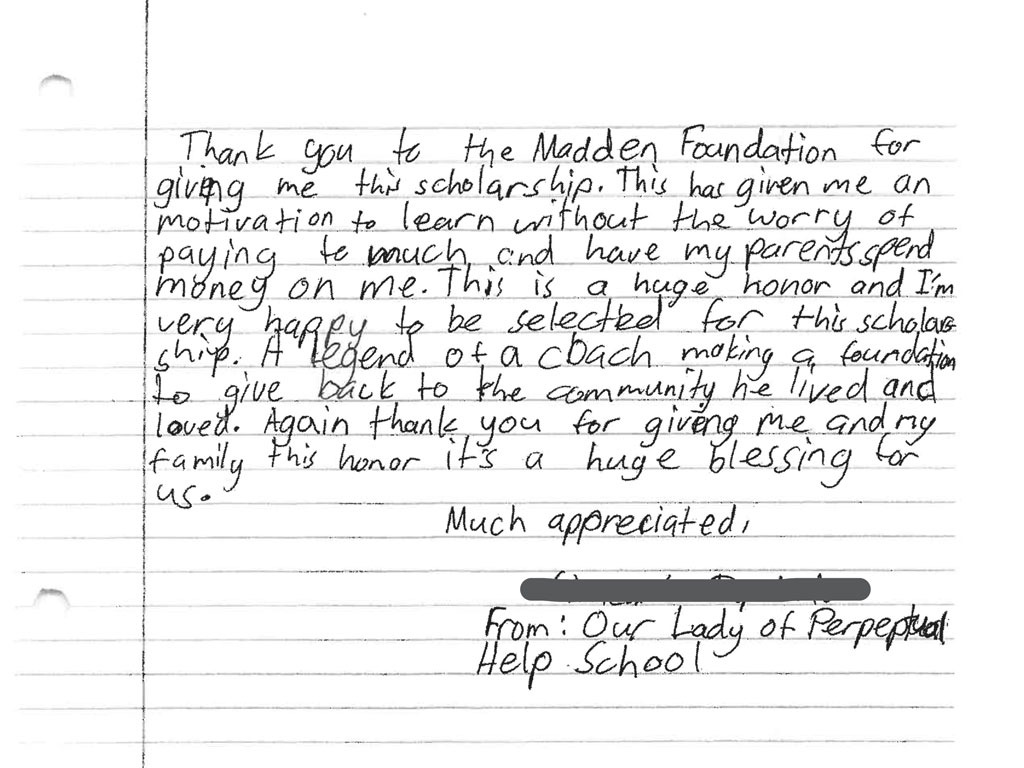 Thank you to the Madden Foundation for
giving me this scholarship. This has given me an
motivation to learn without the worry of
paying to much and have my parents spend
money on me. This is a huge honor and I'm
very happy to be selected for this scholar
ship. A legend of a coach making a foundation
to give back to the community he lived and
loved. Again thank you for giving me and my
family this honor it's a huge blessing for
us.
Much appreciated,
From: Our Lady of Perpeptual
Help School